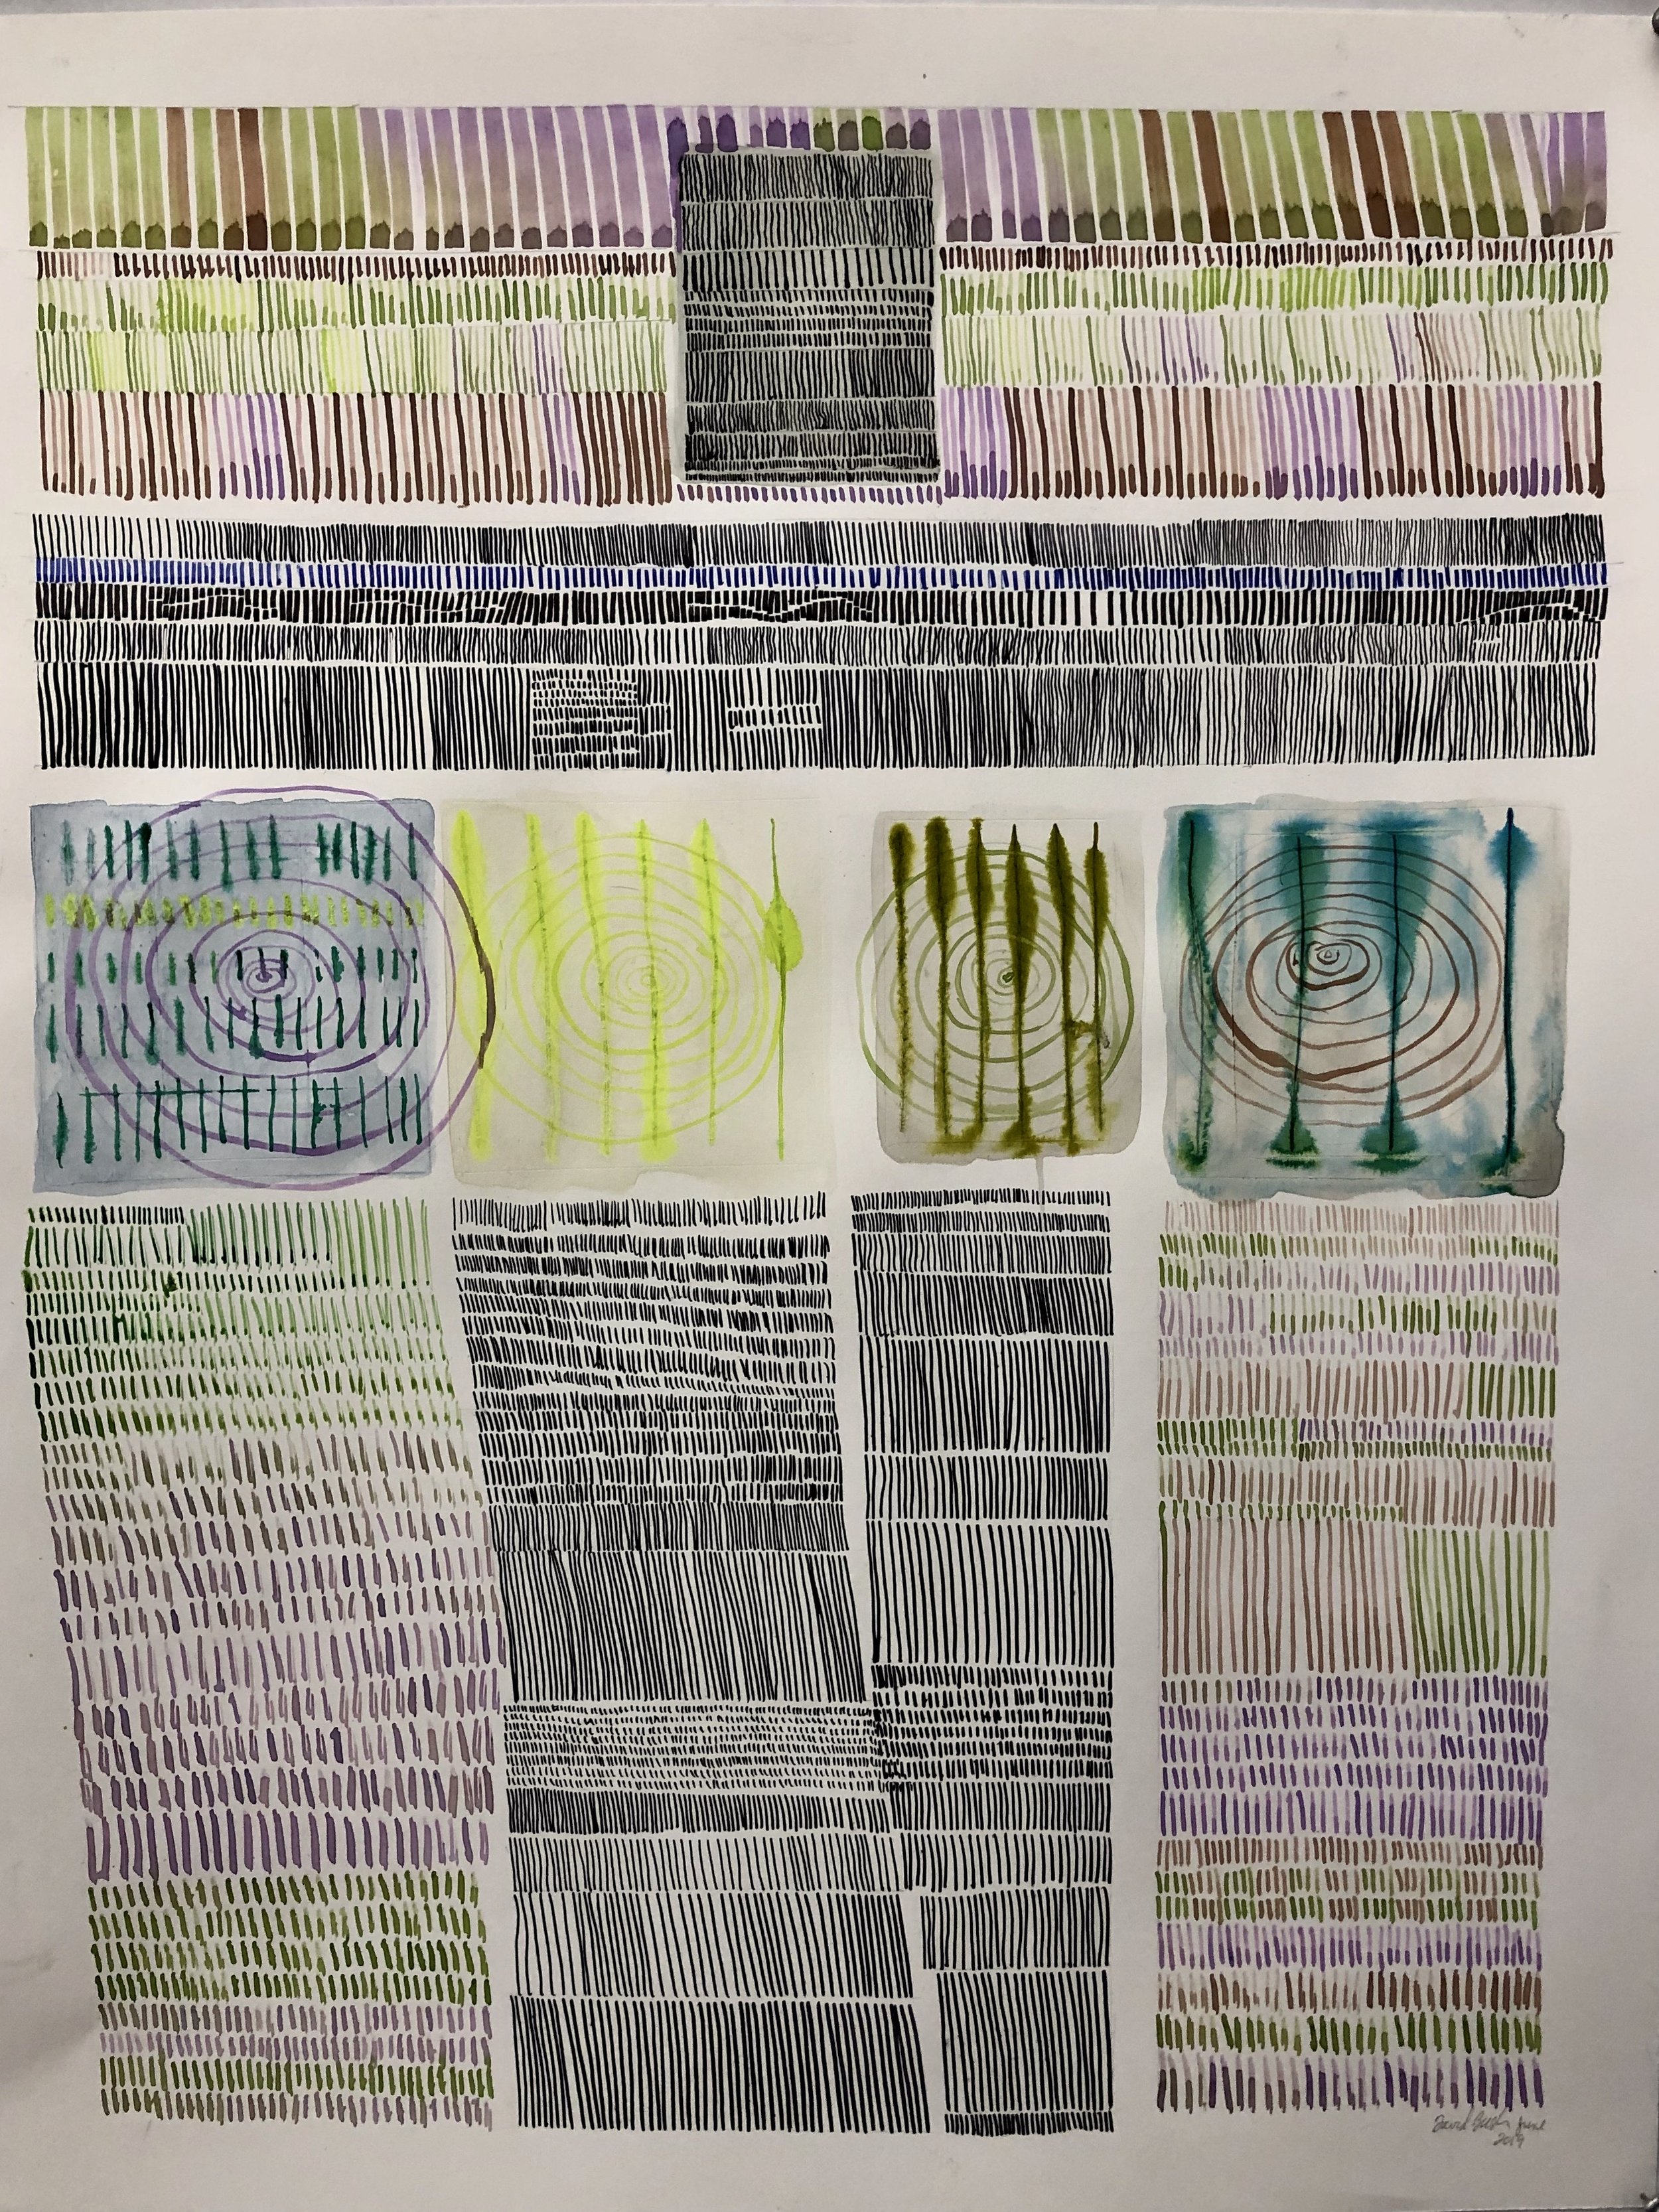 David June
2019